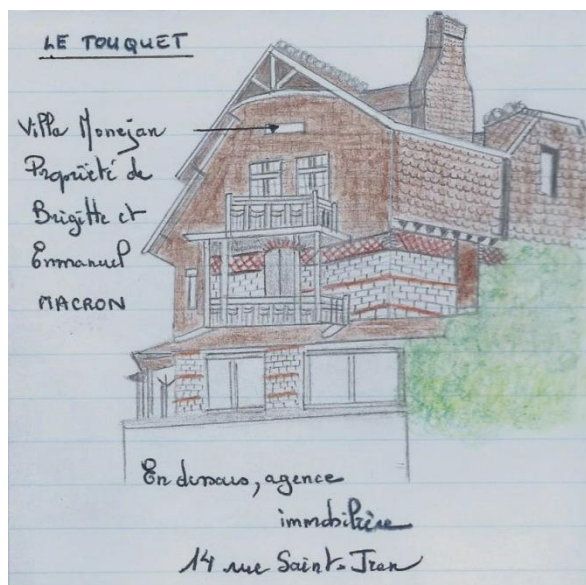 LE TOUQUET
Villa Monejan
Propriété de
Brigitte et
Emmanuel
MACRON
En dessous, agence
immobilière
14 rue Saint-Jean